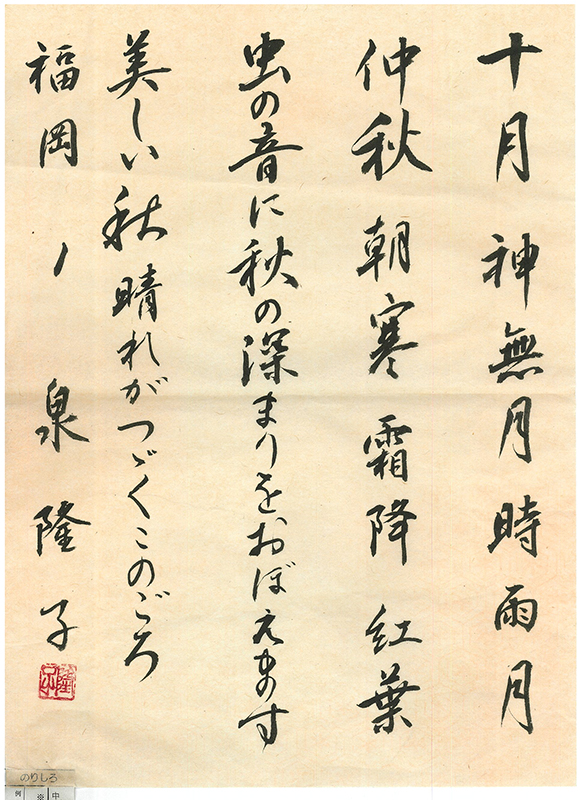 十月 神無月 時雨月
仲秋 朝寒 霜降 紅葉
虫の音に秋の深まりをおぼえます
美しい秋晴れがつゞくこのごろ
福岡 ノ 泉 隆子
のりしろ
例 ※ 中